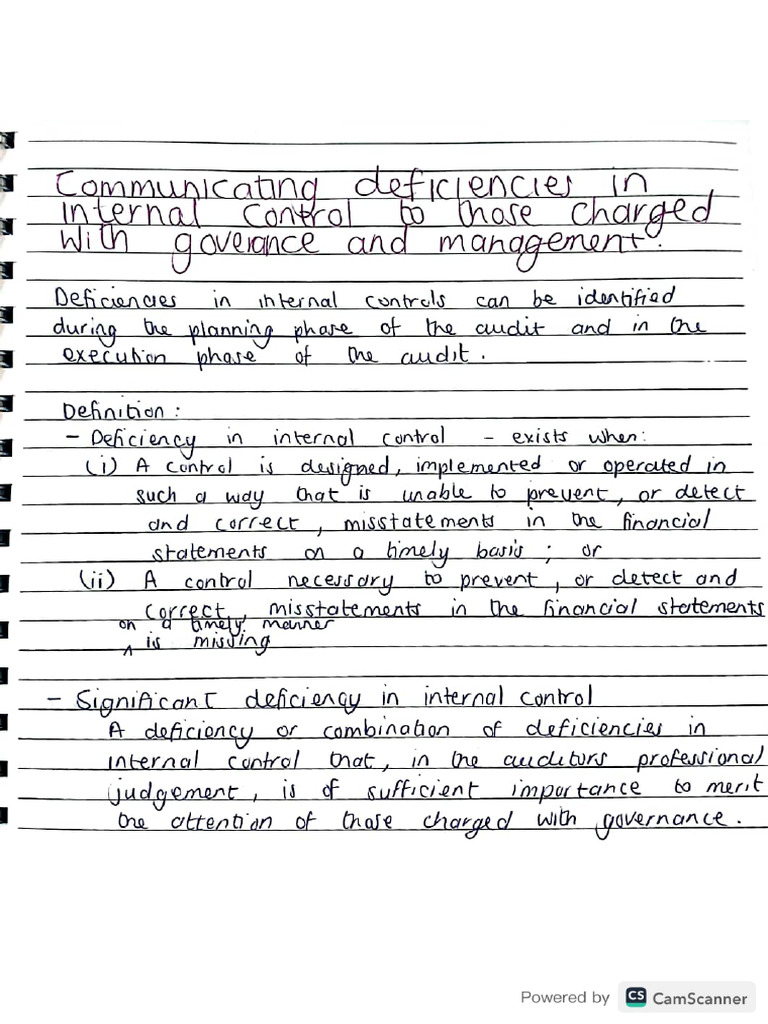 Communicating deficiencies in
internal control to those charged
with goverance and management.
Deficiencies in internal controls can be identified
during the planning phase of the audit and in the
execution phase of the audit.
Definition:
- Deficiency in internal control - exists when:
(i) A control is designed, implemented or operated in
such a way that is unable to prevent, or detect
and correct, misstatements in the financial
statements on a timely basis; or
(ii) A control necessary to prevent, or detect and
correct, misstatements in the financial statements
on a timely manner
^ is missing
- Significant deficiency in internal control
A deficiency or combination of deficiencies in
internal control that, in the auditors professional
judgement, is of sufficient importance to merit
the attention of those charged with governance.
Powered by CS CamScanner